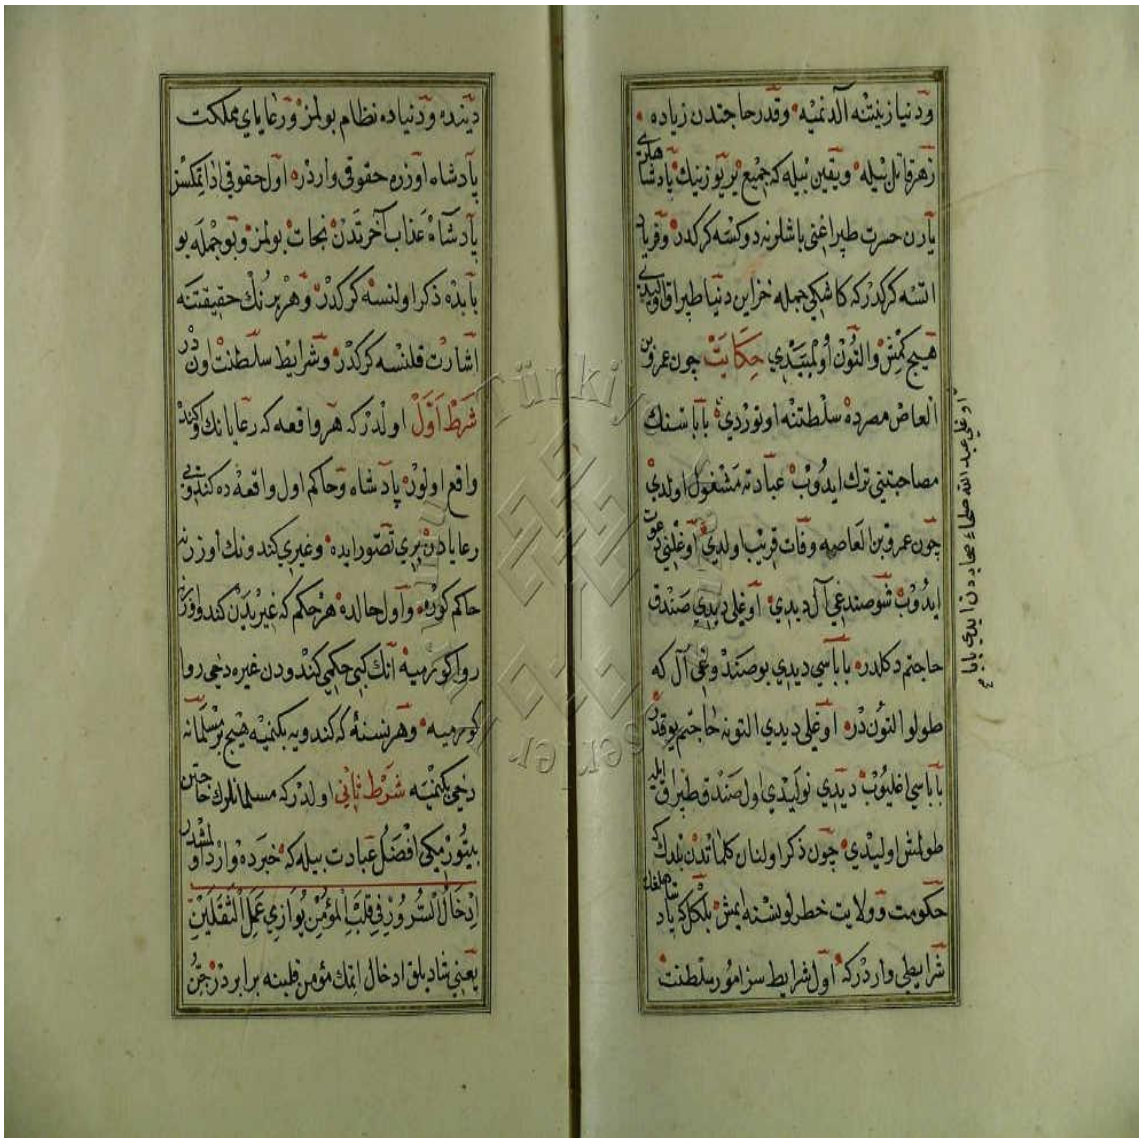 ودنيا زينتنه آلدنميه وقدر حاجتدن زياده
زهر قاتل بيله ويقين بيله كه جميع ير يوزينك پادشاهلرى
يارن حسرت طپراغنى باشلرنه دوكسه كركدر وفرياد
اتسه كركدر كه كاشكى جمله خزاين دنيا طپراق اوليدى
هيچ كمش والتون اولميدى حكايت چون عمرو بن
العاص مصرده سلطنته اوتوردى باباسنك
مصاحبتنى ترك ايدوب عبادته مشغول اولدى
چون عمرو بن العاصه وفات قريب اولدى اوغلنى دعوت
ايدوب شو صندغى آل ديدى اوغلى ديدى صندق
حاجتم دكلدر باباسى ديدى بو صندوغى آل كه
طولو التون در اوغلى ديدى التونه حاجتم يوقدر
باباسى اغليوب ديدى نوليدى اول صندق طپراق ايله
طولمش اوليدى چون ذكر اولنان كلماتدن بلدك كه
حكومت وولايت خطرلو نسنه ايمش بلكل كه پادشاهلغك
شرايطى واردر كه اول شرايط سز امور سلطنت
اوغلى عبد الله صلحاء صحابه دن ايدى بابا
ديننده ودنياده نظام بولمز ورعاياى مملكت
پادشاه اوزره حقوقى واردر اول حقوقى ادا اتمكسز
پادشاه عذاب آخرتدن نجات بولمز وبو جمله بو
بابده ذكر اولنسه كركدر وهر برنك حقيقتنه
اشارت قلنسه كركدر وشرايط سلطنت اون در
شرط اول اولدر كه هر واقعه كه رعايانك
واقع اولور پادشاه وحاكم اول واقعه ده كندويى
رعايادن برى تصور ايده وغيرى كندونك اوزرنه
حاكم كوره واول حالده هر حكم كه غيريدن كندو اوزرنه
روا كورميه آنك كبى حكمى كندودن غيره دخى روا
كورميه وهر نسنه كه كندويه بكنميه هيچ بر مسلمانه
دخى بكنميه شرط ثانى اولدر كه مسلمانلرك حاجتن
بيتورمكى افضل عبادت بيله كه خبرده وارد اولمشدر
ادخال السرور فى قلب المؤمن يوازى عمل الثقلين
يعنى شادلق ادخال اتمك مؤمن قلبنه برابردر جن